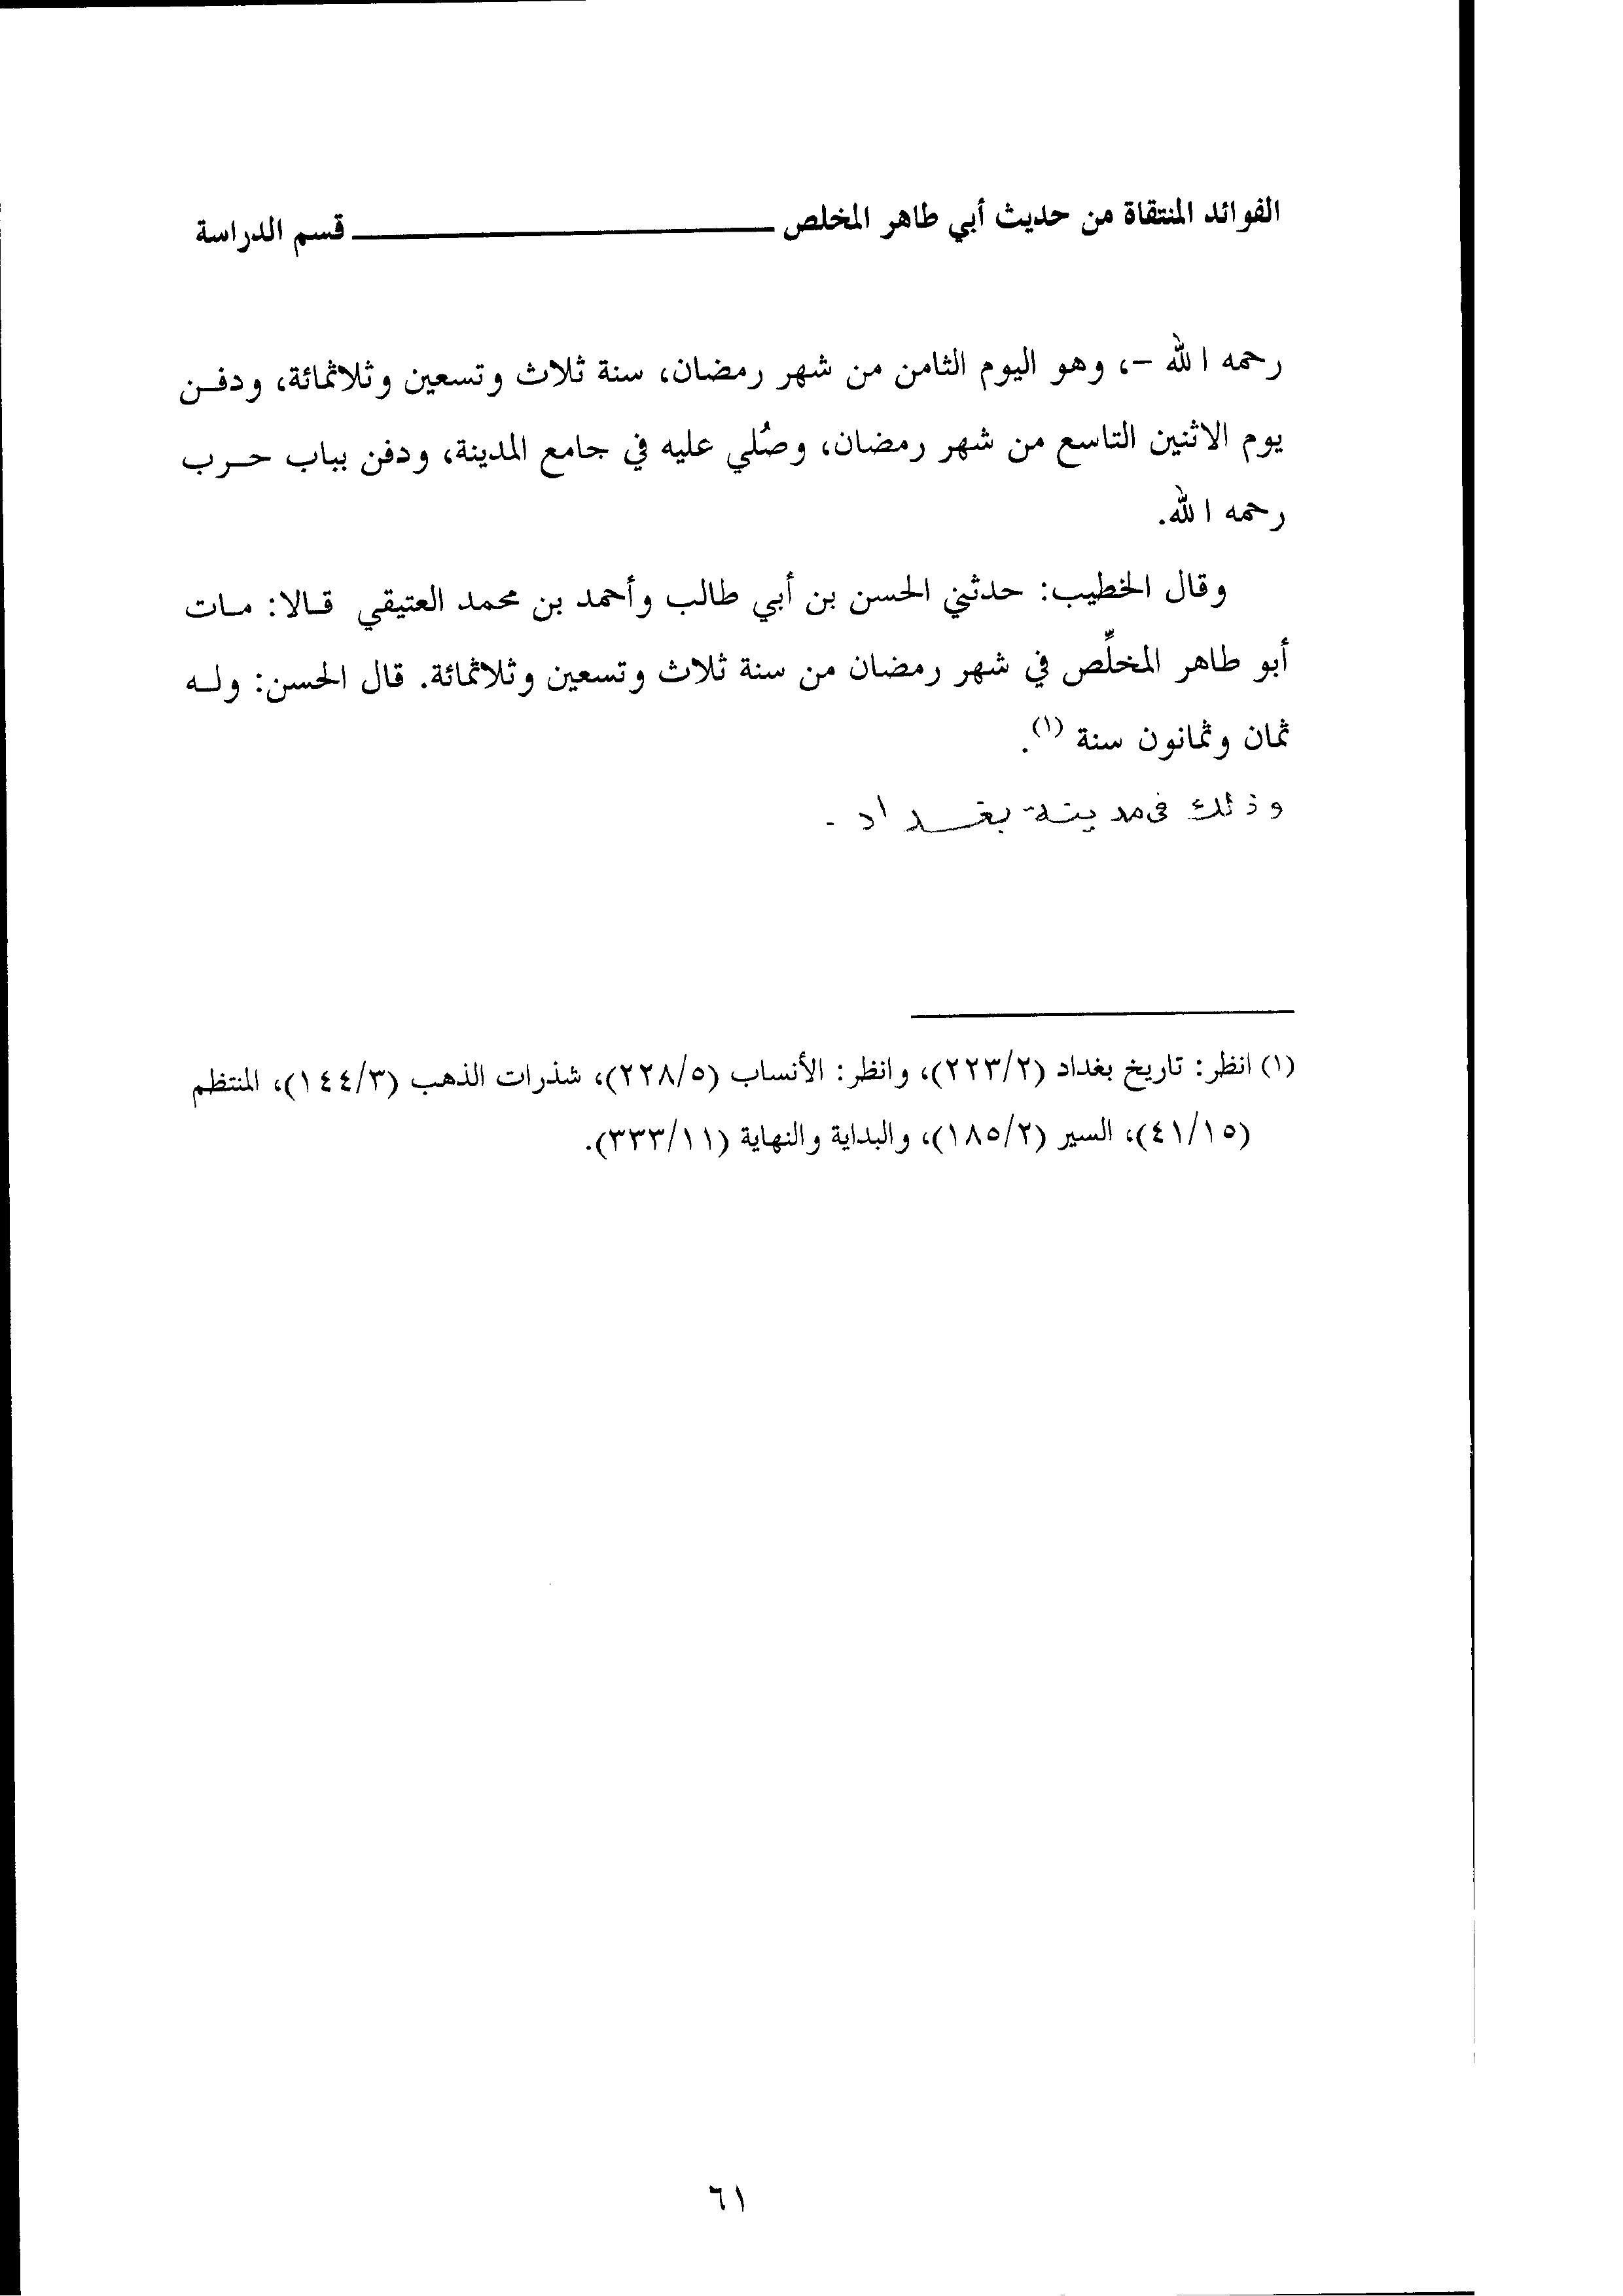 الفوائد المنتقاة من حديث أبي طاهر المخلص ــــــــــــــــــــ قسم الدراسة
رحمه الله –، وهو اليوم الثامن من شهر رمضان، سنة ثلاث وتسعين وثلاثمائة، ودفـن
يوم الاثنين التاسع من شهر رمضان، وصُلي عليه في جامع المدينة، ودفن بباب حـرب
رحمه الله.
وقال الخطيب: حدثني الحسن بن أبي طالب وأحمد بن محمد العتيقي قـالا: مـات
أبو طاهر المخلِّص في شهر رمضان من سنة ثلاث وتسعين وثلاثمائة. قال الحسن: ولـه
ثمان وثمانون سنة (١).
وذلك في مدينة بغـداد -
(١) انظر: تاريخ بغداد (٢٢٣/٢)، وانظر: الأنساب (٢٢٨/٥)، شذرات الذهب (١٤٤/٣)، المنتظم
(٤١/١٥)، السير (١٨٥/٢)، والبداية والنهاية (٣٣٣/١١).
٦١